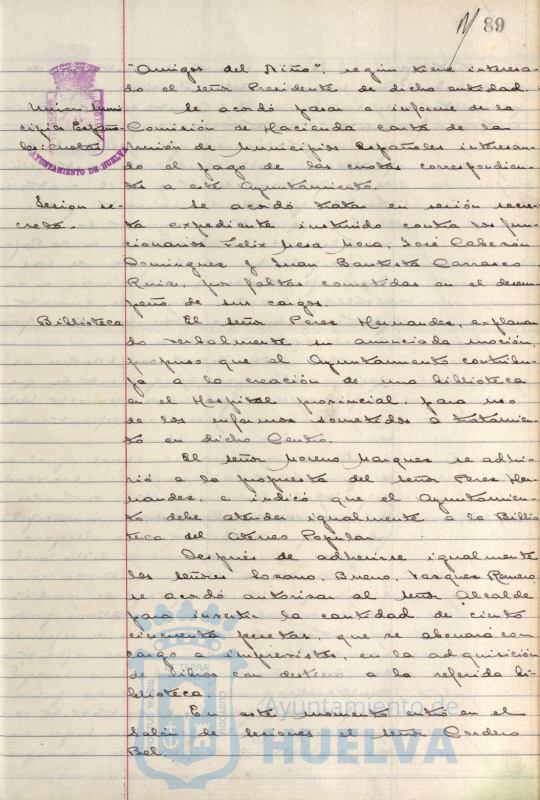 89
"Amigos del Niño", segun tiene interesa-
do el señor Presidente de dicha entidad.
Union Muni-
cipios Españo-
les: Cuotas
Se acordó pasar a informe de la
Comisión de Hacienda carta de la
Unión de Municipios Españoles interesan-
do el pago de las cuotas correspondien-
tes a este Ayuntamiento.
Sesion se-
creta.
Se acordó tratar en sesión secre-
ta expediente instruido contra los fun-
cionarios Felix Mesa Mora, José
Dominguez y Juan Bautista Carrasco
Ruiz, por faltas cometidas en el desem-
peño de sus cargos.
Biblioteca
El señor Perez Hernandez, explanan-
do verbalmente su anunciada moción,
propuso que el Ayuntamiento contribu-
ya a la creación de una biblioteca
en el Hospital provincial, para uso
de los enfermos sometidos a tratamien-
to en dicho Centro.
El señor Moreno Marquez se adhi-
rió a la propuesta del señor Perez Her-
nandez, e indicó que el Ayuntamien-
to debe atender igualmente a la Biblio-
teca del Ateneo Popular.
Después de adherirse igualmente
los señores Lozano, Bueno, Vazquez Romero,
se acordó autorizar al señor Alcalde
para invertir la cantidad de ciento
cincuenta pesetas, que se abonará con
cargo a imprevistos, en la adquisición
de libros con destino a la referida bi-
blioteca.
En este momento entró en el
Salón de Sesiones el señor Cordero
Bel.
AYUNTAMIENTO DE HUELVA
Ayuntamiento de
HUELVA